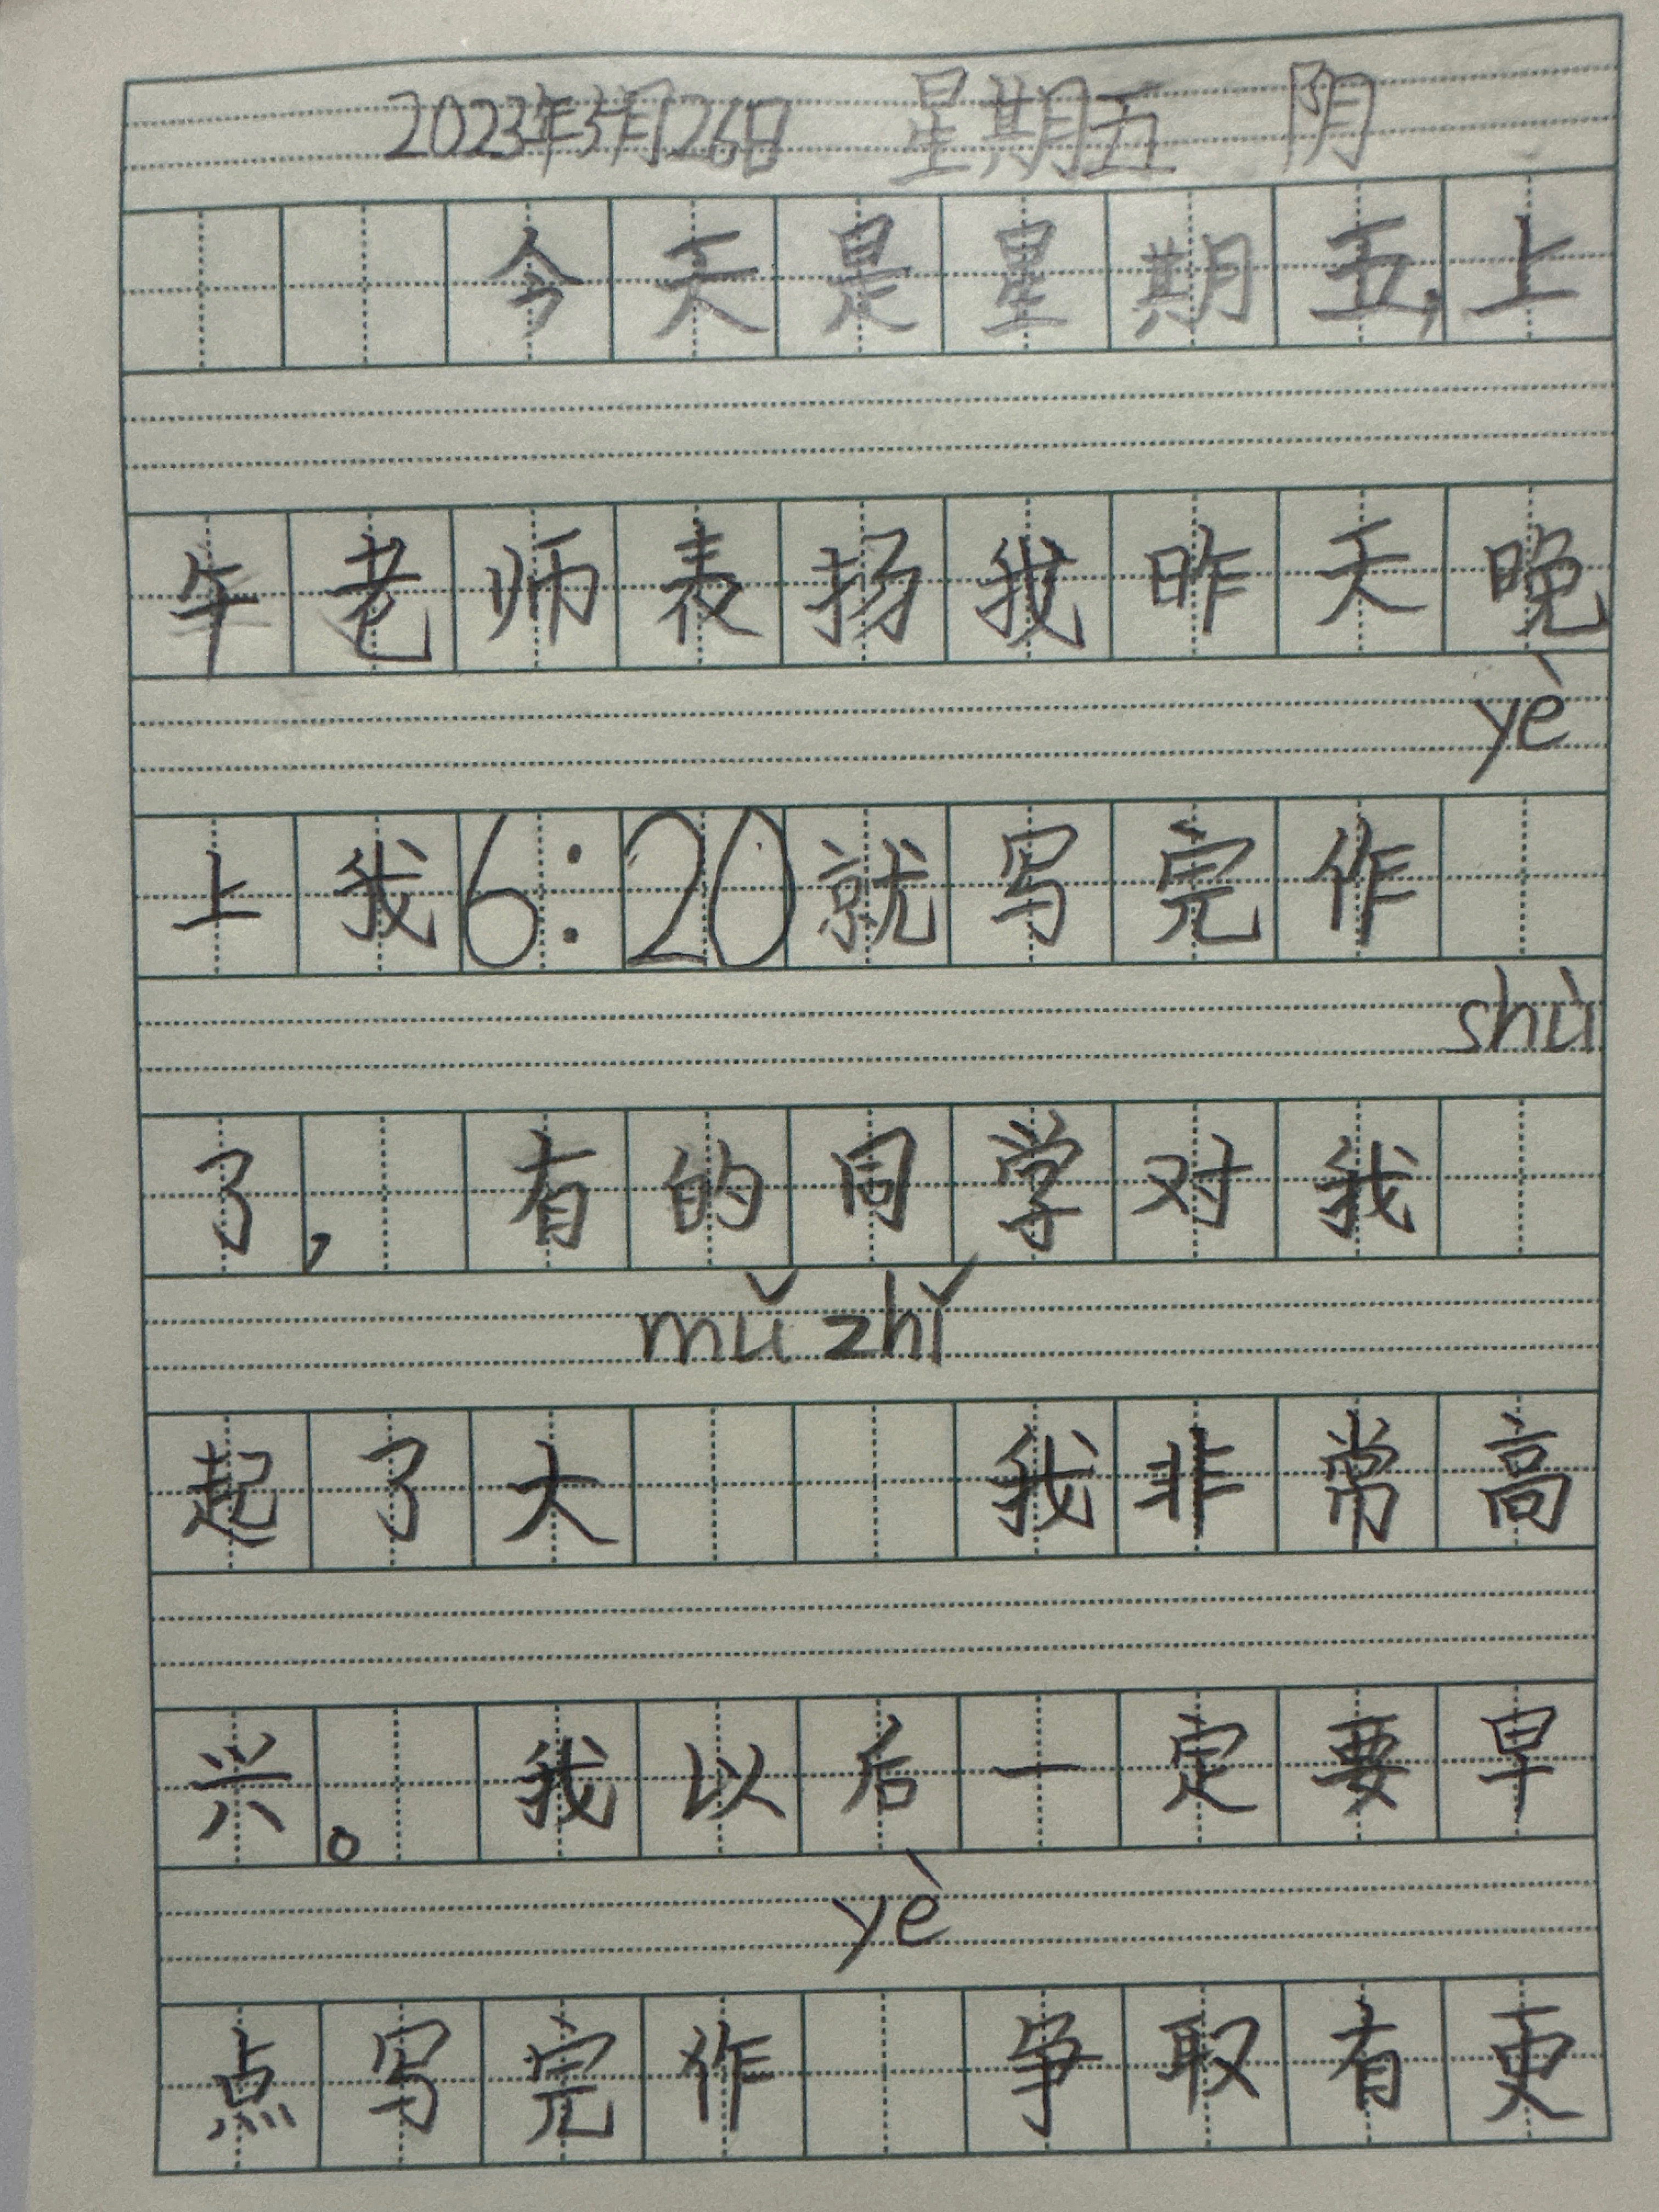 2023年5月26日 星期五 阴
今天是星期五,上
午老师表扬我昨天晚
yè
上我6:20就写完作
shù
了,有的同学对我
mǔ zhǐ
起了大 我非常高
兴。我以后一定要早
yè
点写完作 争取有更